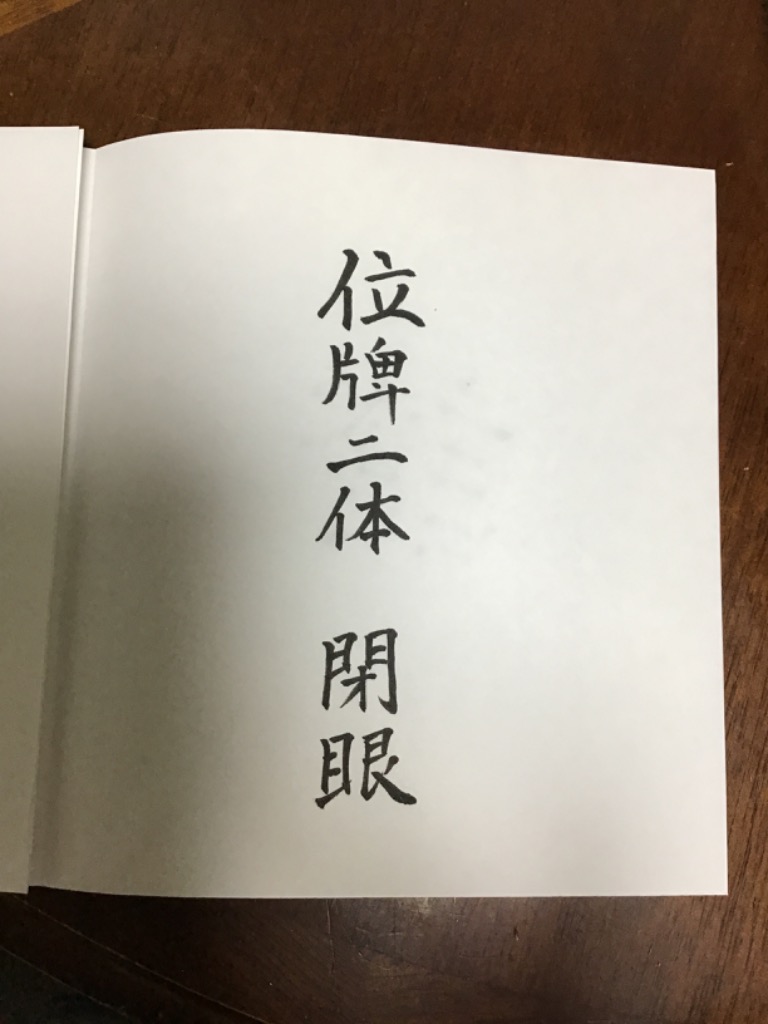 位牌二体 閉眼